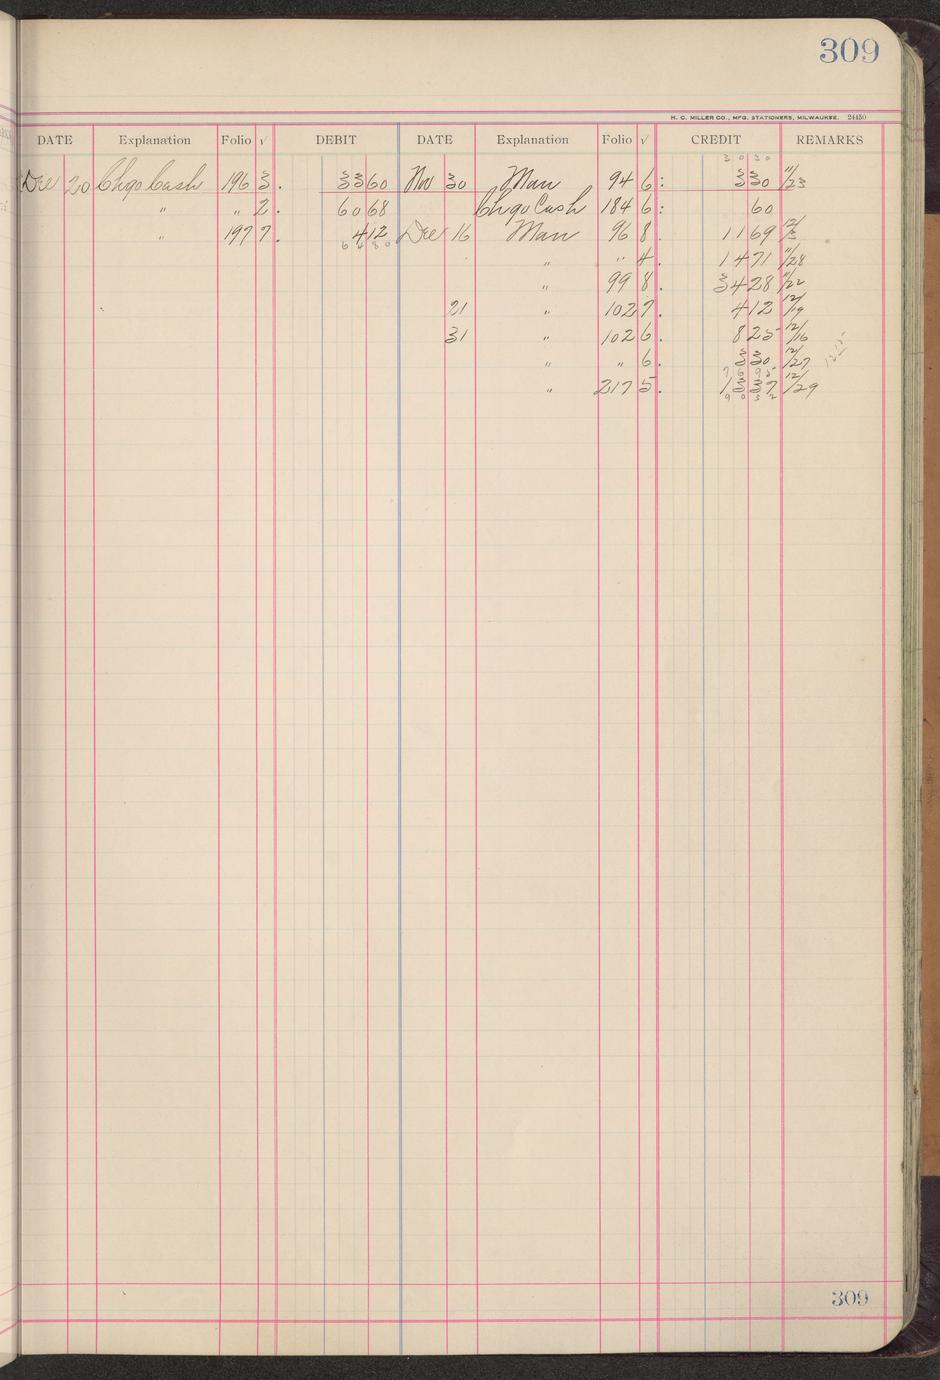 309
H. C. MILLER CO., MFG. STATIONERS, MILWAUKEE. 24450
DATE Explanation Folio √ DEBIT DATE Explanation Folio √ CREDIT REMARKS
30 30
Dec 20 Chgo Cash 196 3. 33 60 Nov 30 Man 94 6: 3 30 11/23
" " 2. 60 68 Chgo Cash 184 6: 60
" 197 7. 4 12 Dec 16 Man 96 8 11 69 12/3
" " 4. 14 71 11/28
" 99 8. 34 28 11/22
21 " 102 7. 4 12 12/19
31 " 102 6. 8 25 12/16
" " 6. 3 30 12/27
76 95
" 217 5. 13 37 12/29
90 32
309